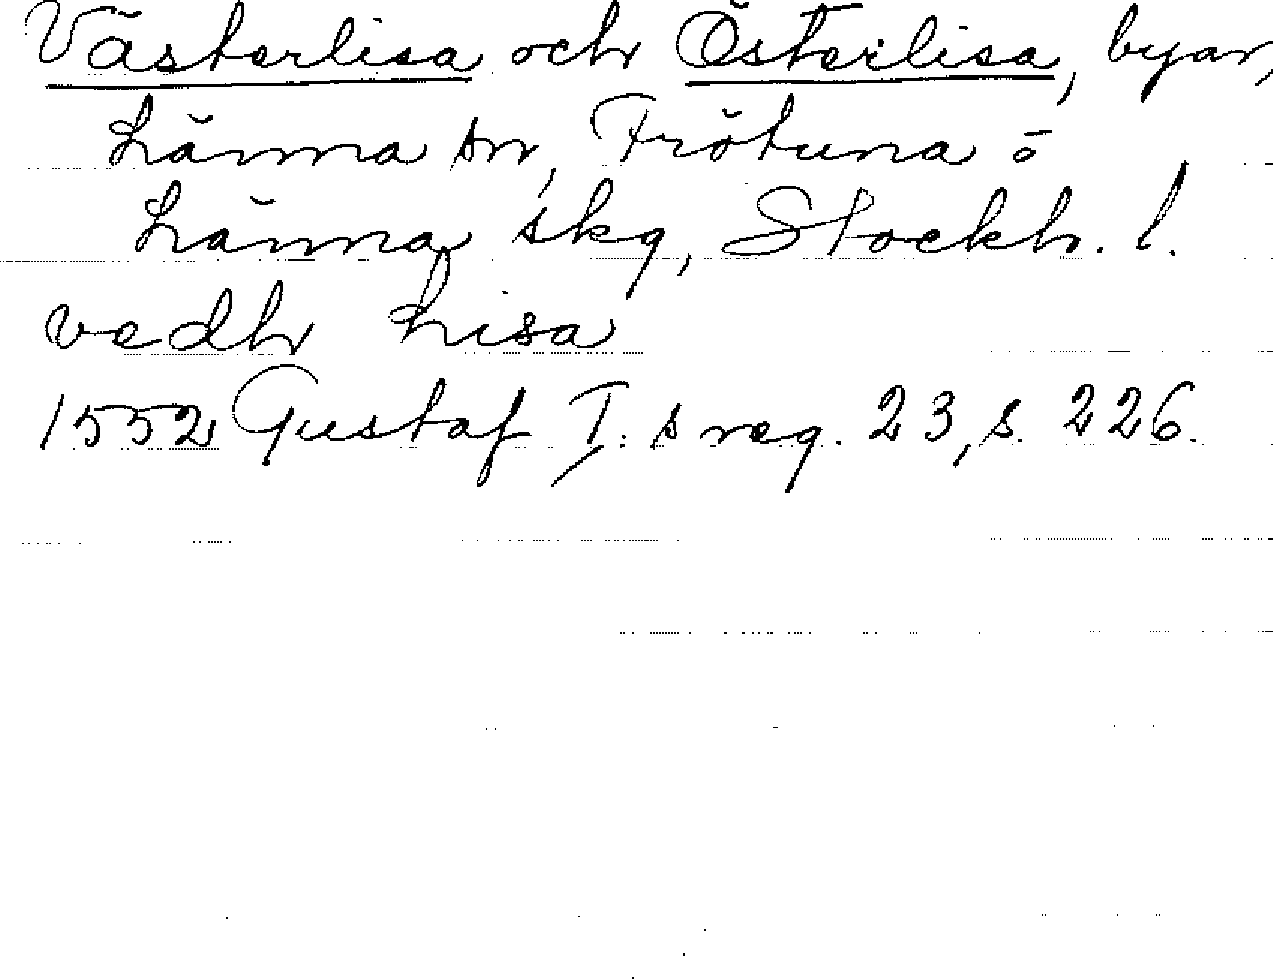 Västerlisa och Österlisa, byar,
Länna sn, Frötuna o
Länna skg, Stockh. l.
vedh Lisa
1552 Gustaf I:s reg. 23, s. 226.